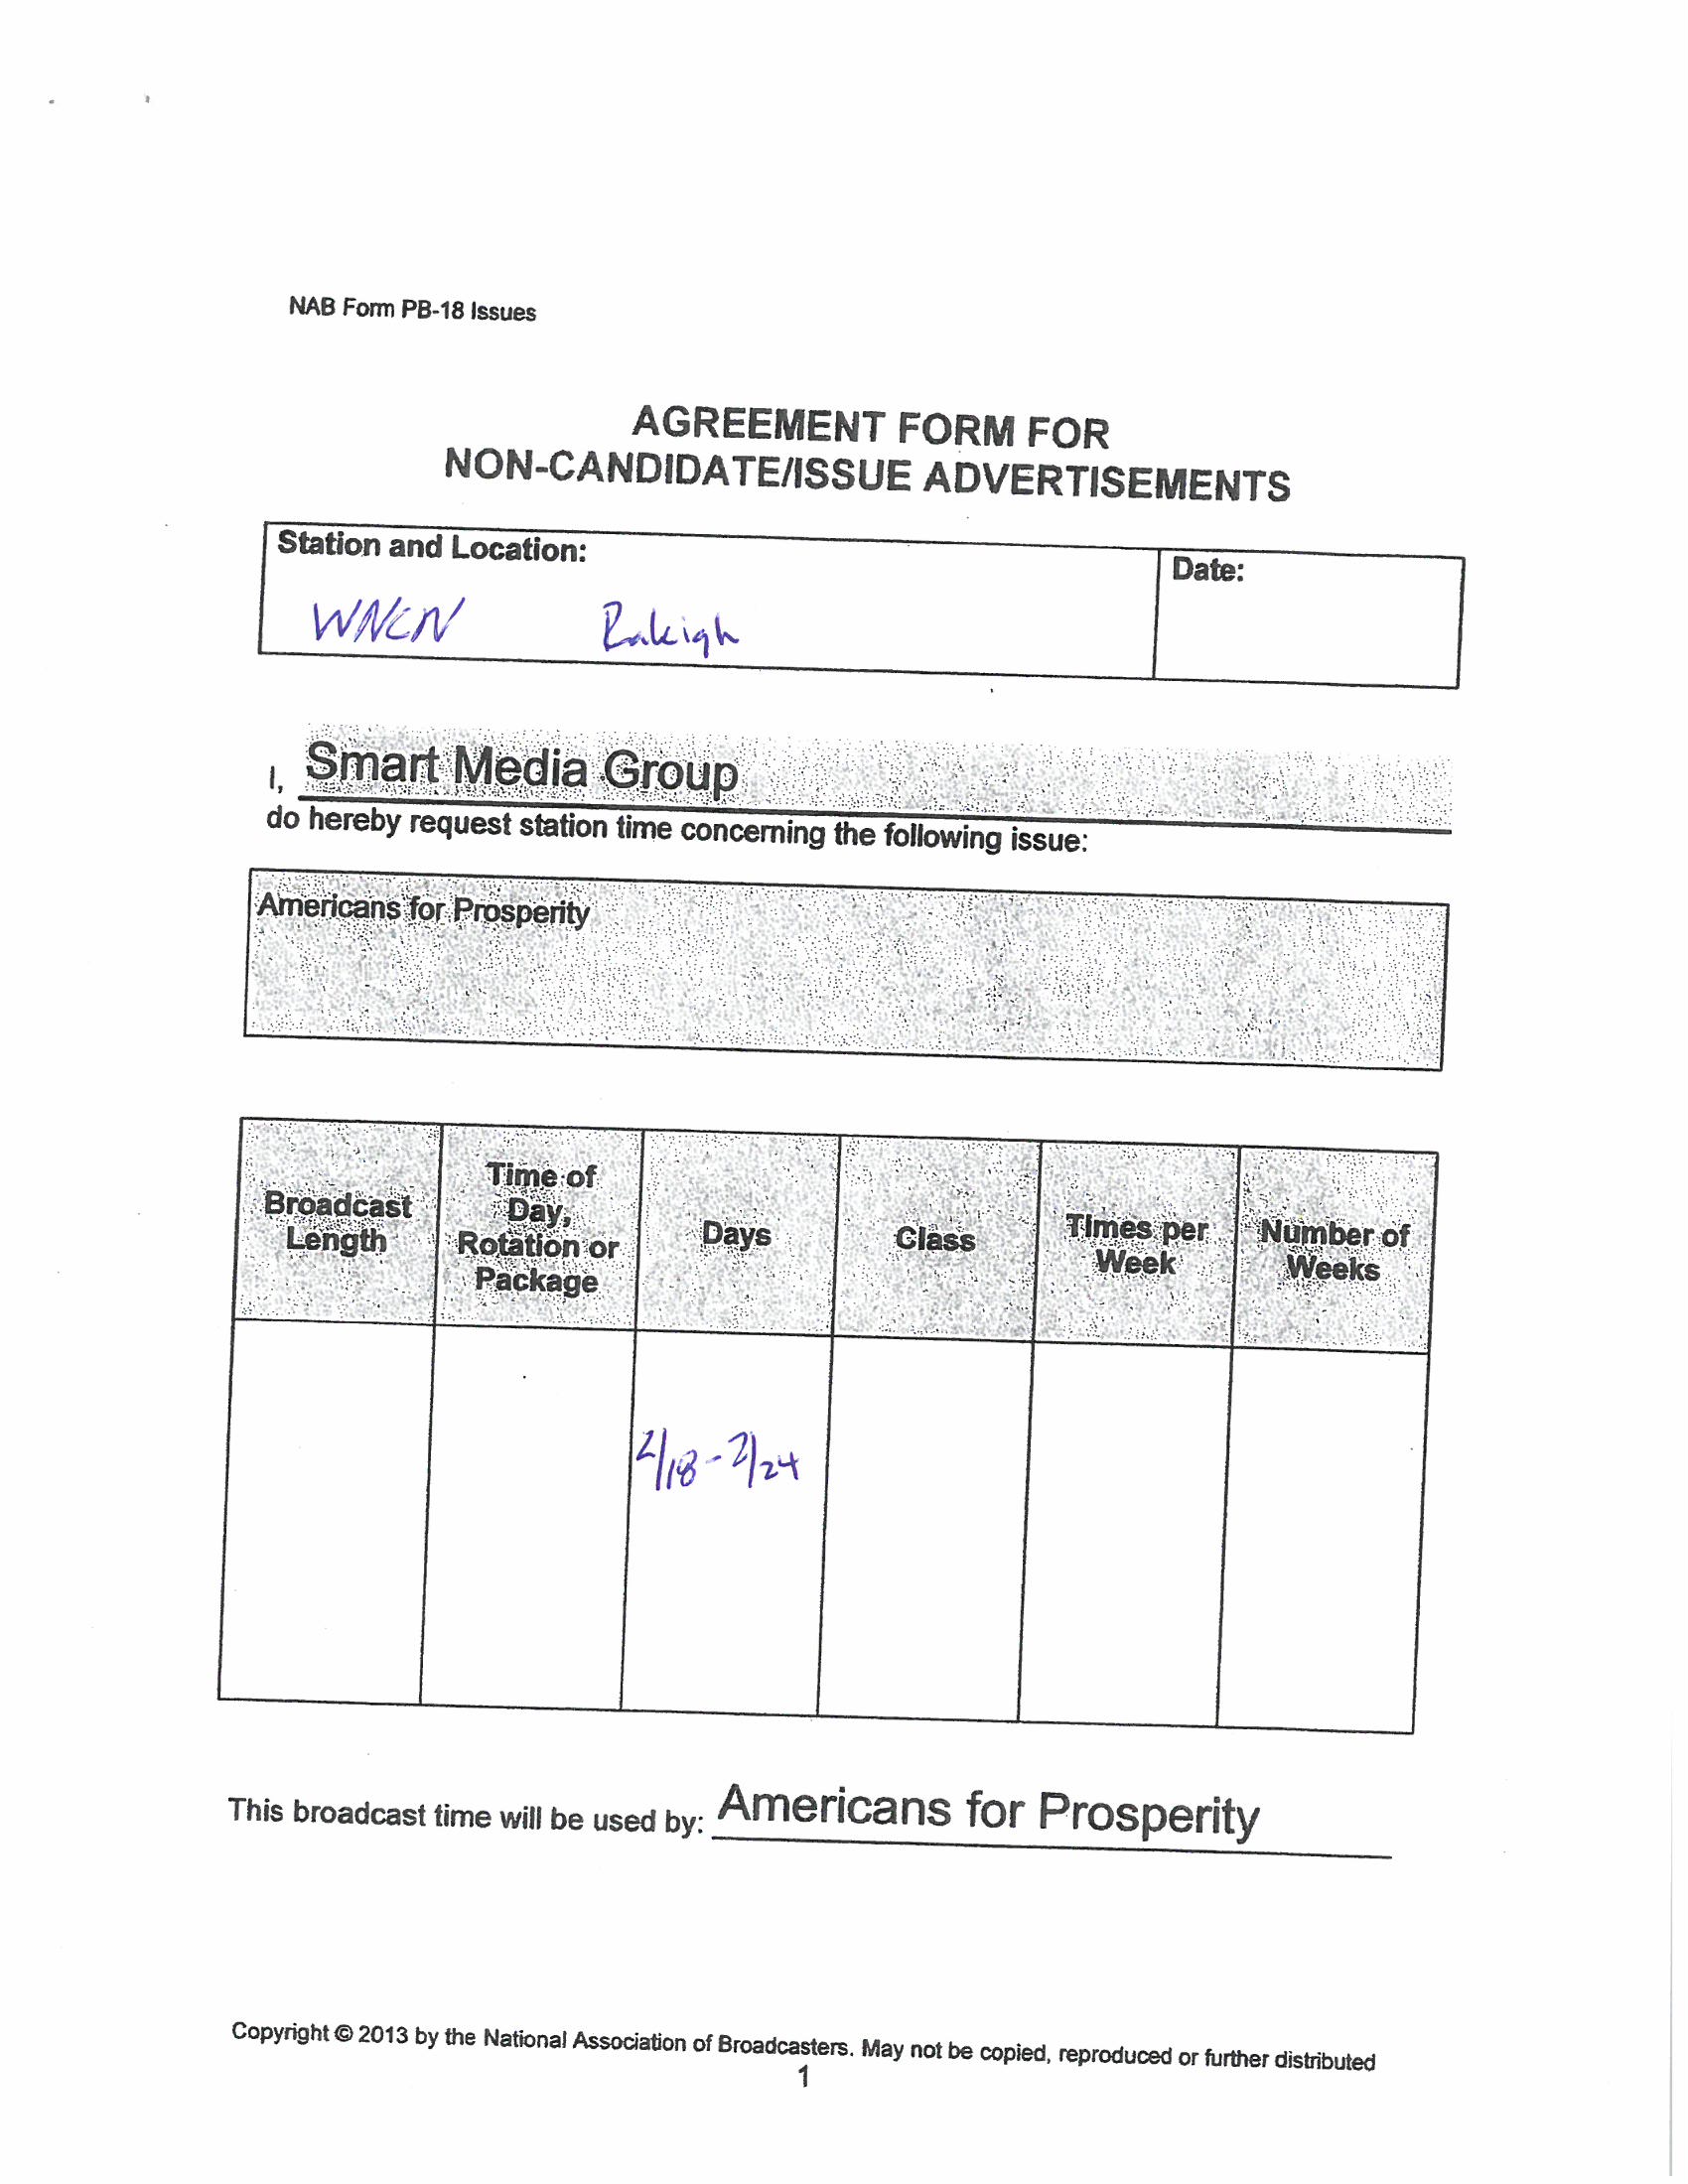 NAB Form PB-18 Issues
AGREEMENT FORM FOR
NON-CANDIDATE/ISSUE ADVERTISEMENTS
Station and Location:
Date:
WNCN Raleigh
I, Smart Media Group
do hereby request station time concerning the following issue:
Americans for Prosperity
Broadcast
Length
Time of
Day,
Rotation or
Package
Days
Class
Times per
Week
Number of
Weeks
2/18 - 2/24
This broadcast time will be used by: Americans for Prosperity
Copyright © 2013 by the National Association of Broadcasters. May not be copied, reproduced or further distributed
1